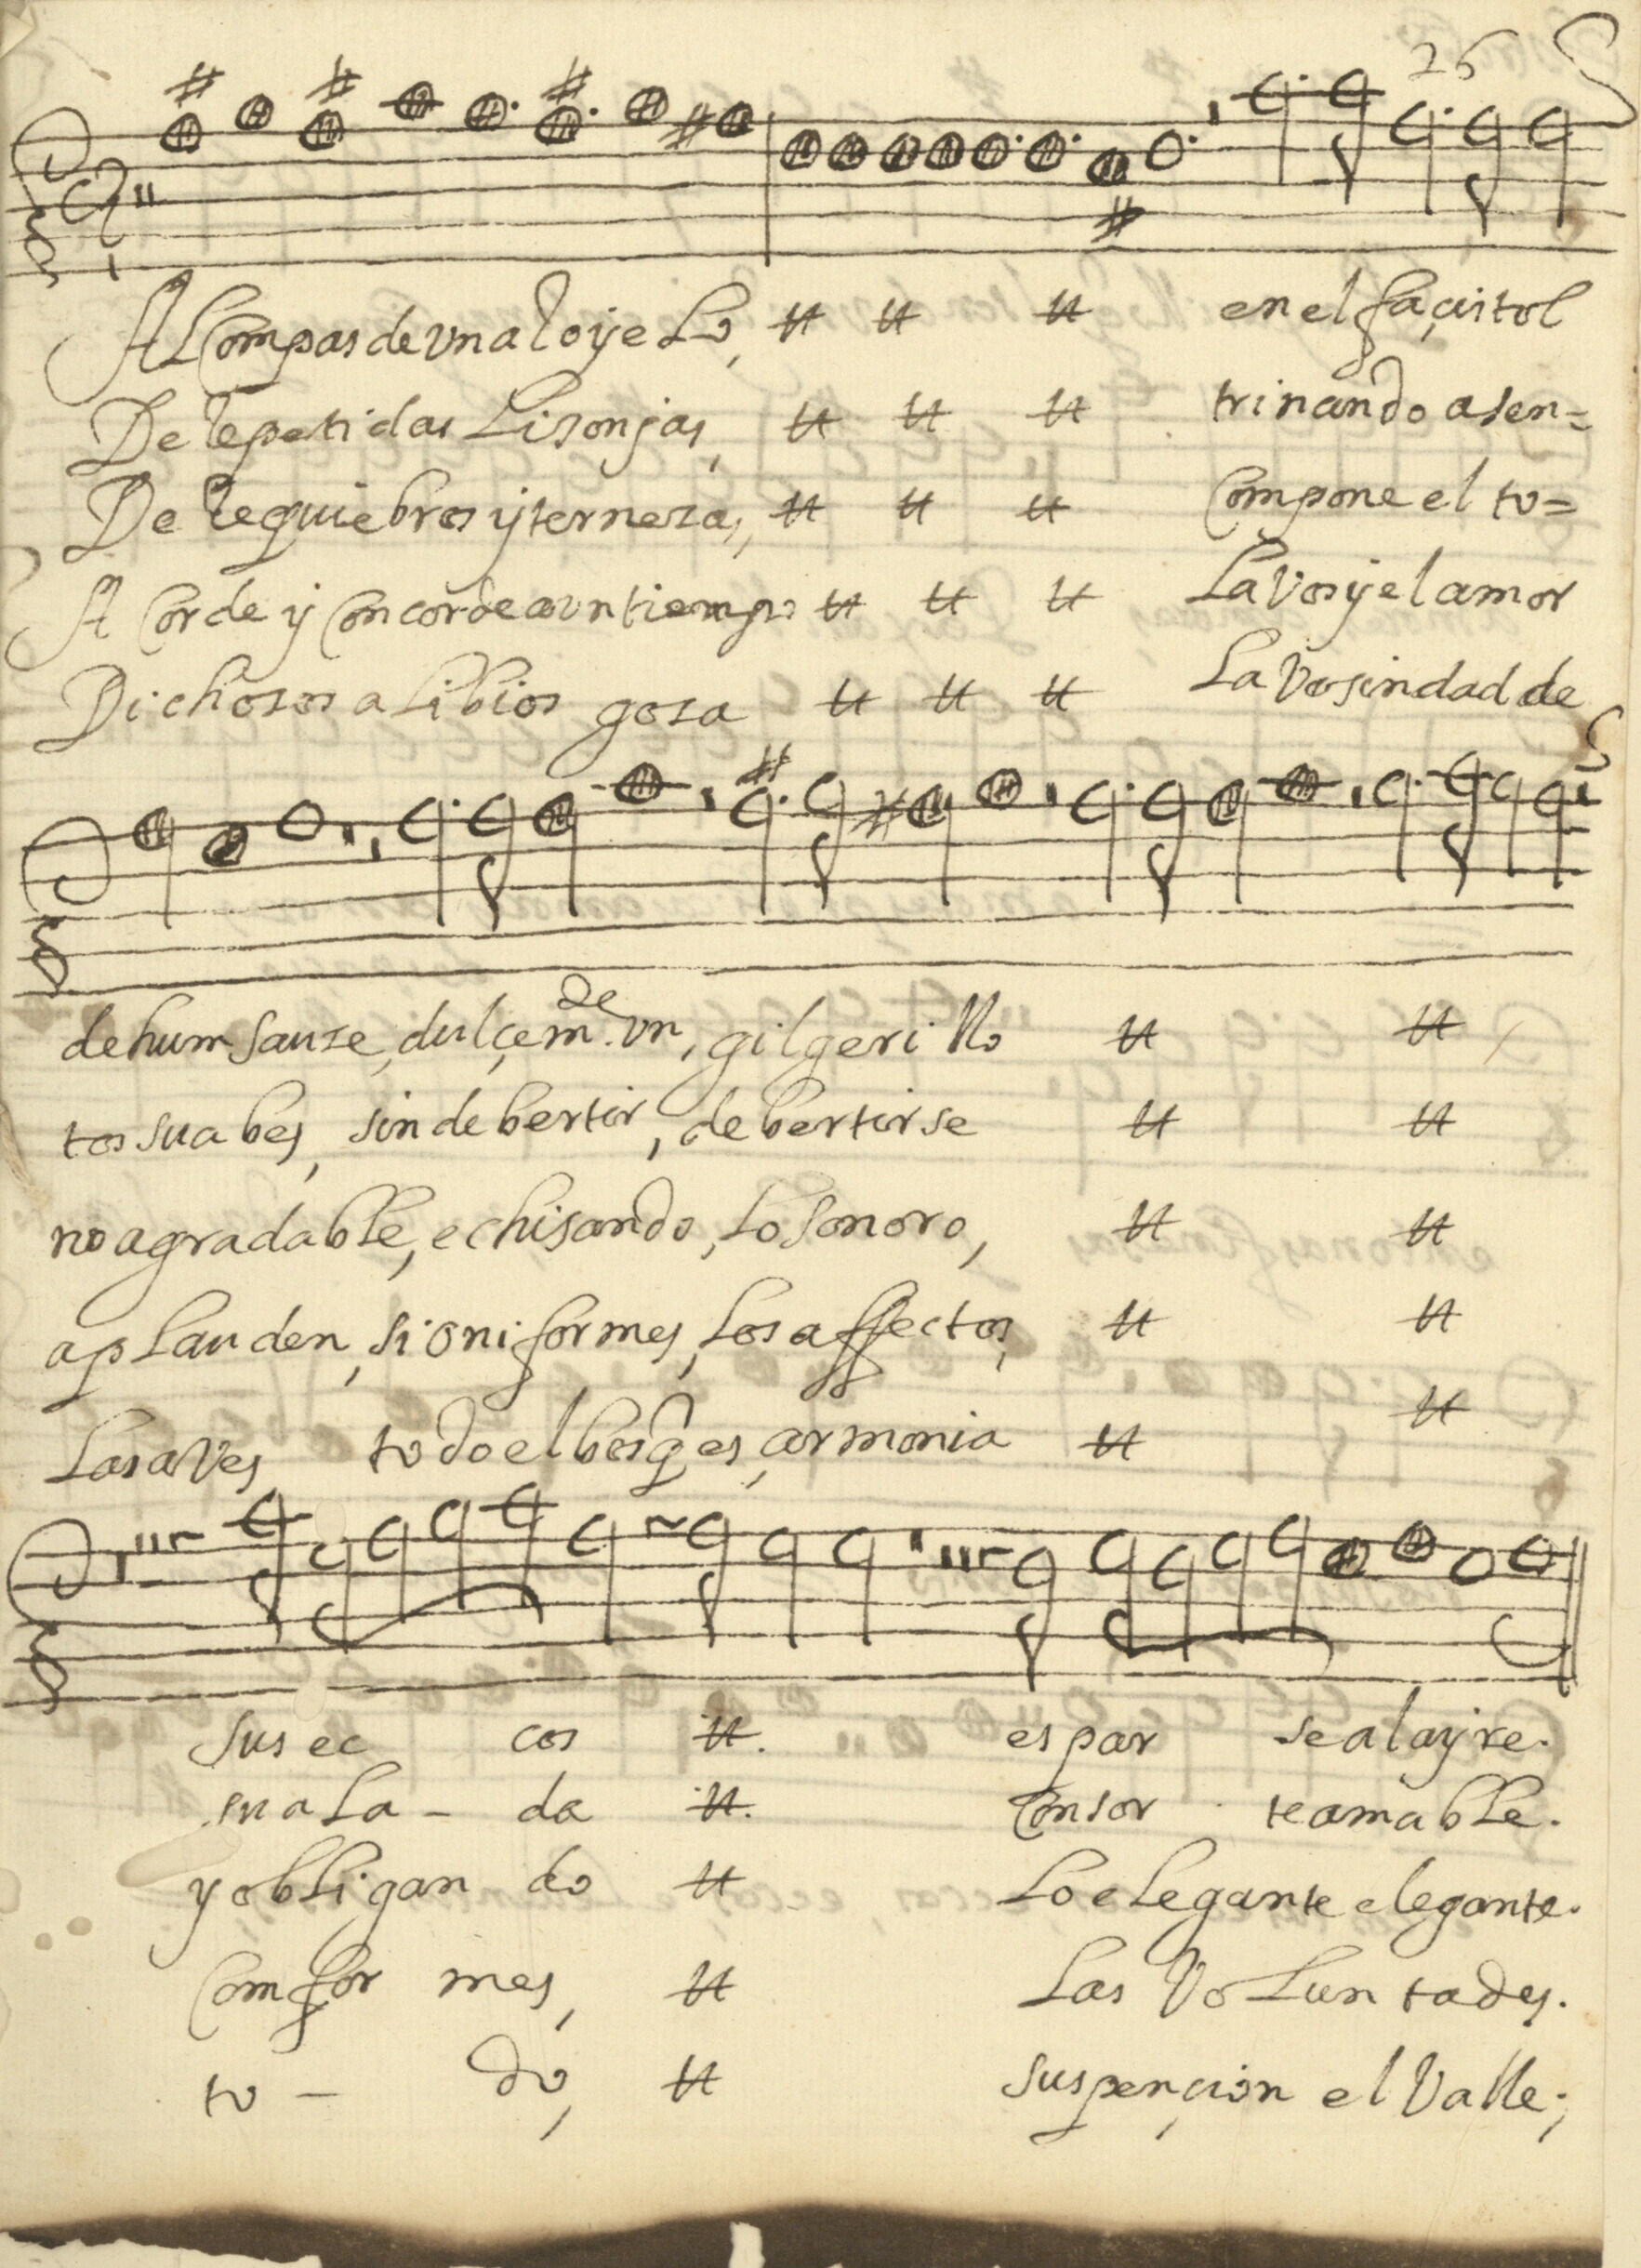 26
Al Compas de un aRoyeLo, # # # en el façistol
De Repetidas Lisonjas, # # # trinando asen=
De Requiebros y ternezas, # # # Compone el to=
A Corde y Concorde aun tiempo # # # La Vos y el amor
Dichosos aLibios gosa # # # La Vosindad de
de hum Sause, dulçem.de un, gilgerillo # #
tos suabes, sin debertir, debertirse # #
no agradable, echisando, Lo Sonoro, # #
apLauden, si oniformes, Los affectos, # #
Las aVes todo el bosq es, armonia # #
sus ec cos #. esparse al ayre.
su aLa - da #. Consorte amable.
y obLigan do # Lo eLegante elegante.
Comfor mes, # Las VoLuntades.
to - do, # suspençion el Valle;